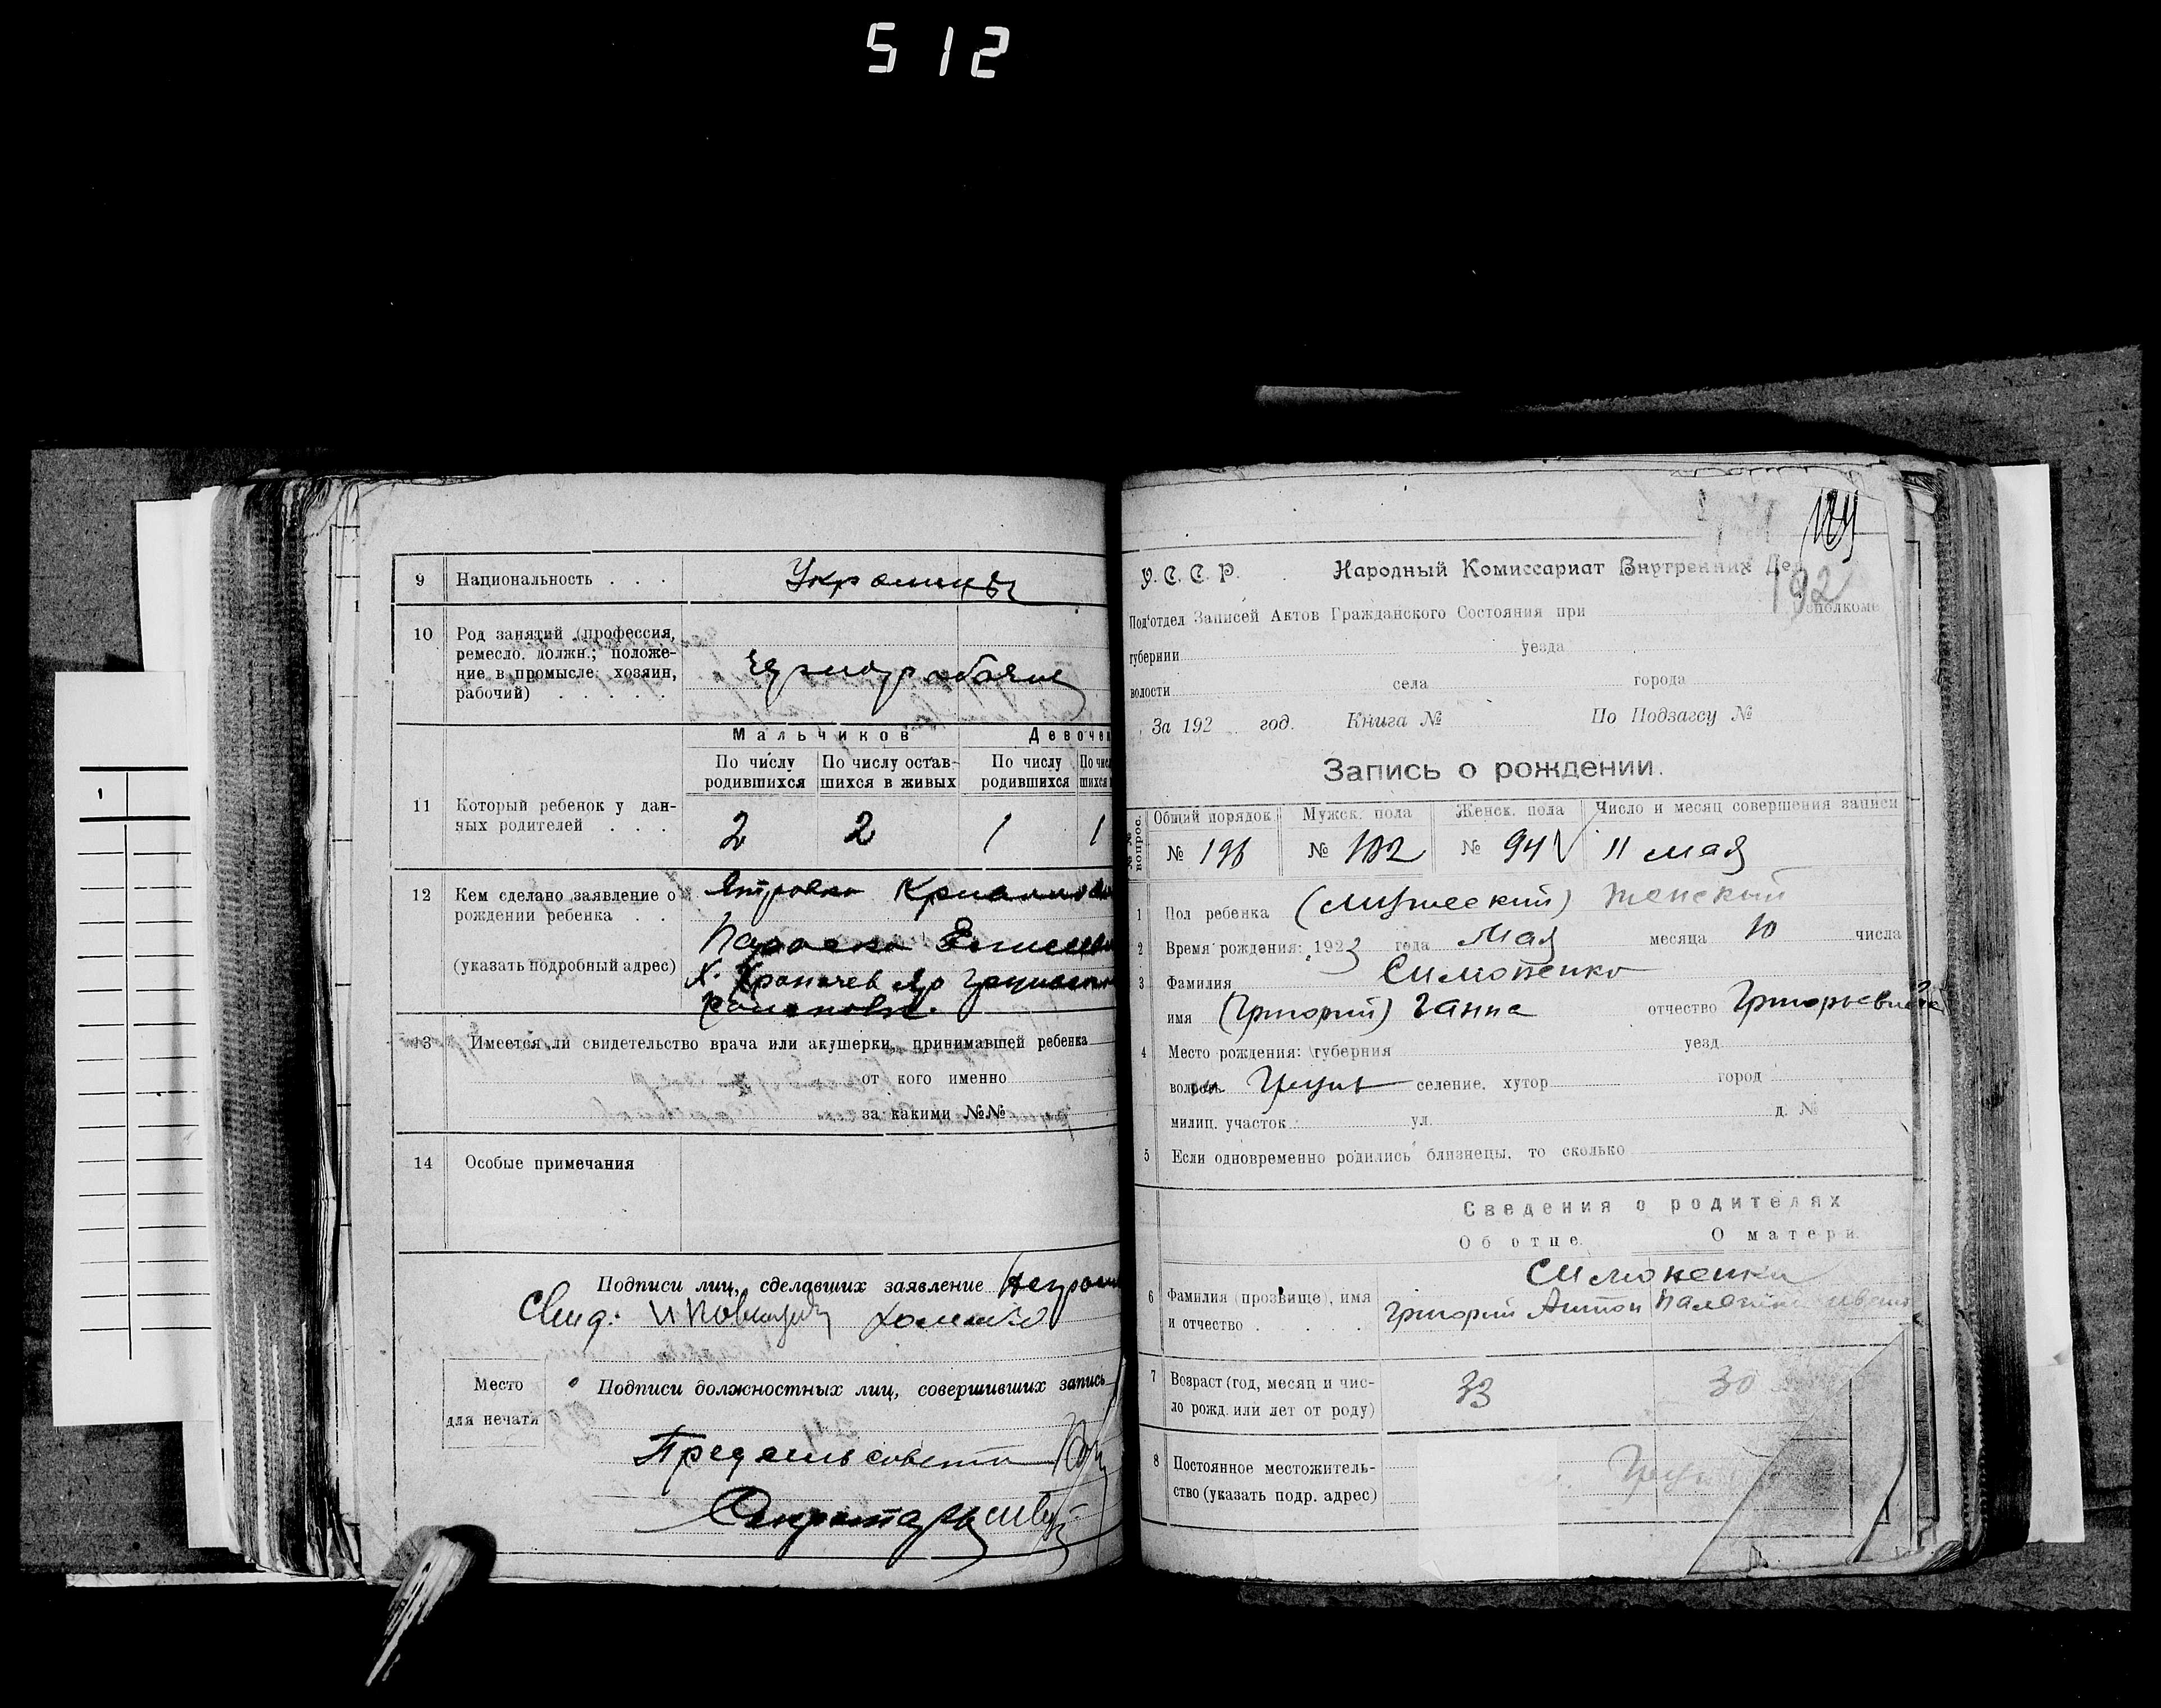 512
9 Национальность . . . Украинцы
10 Род занятий (профессия,
ремесло, должн.; положе-
ние в промысле: хозяин,
рабочий) . . . .
Мальчиков Девочек
По числу родившихся По числу остав-шихся в живых По числу родившихся По чис шихся
11 Который ребенок у дан-
ных родителей . . . 2 2 1 1
12 Кем сделано заявление о
рождении ребенка . .
(указать подробный адрес)
13 Имеется ли свидетельство врача или акушерки, принимавшей ребенка
от кого именно
за какими №№
14 Особые примечания
Подписи лиц, сделавших заявление
Свид:
Место
для печати
Подписи должностных лиц, совершивших запись
Пред сельсовета
Секретарь
192
У.С.С.Р. Народный Комиссариат Внутренних Дел
Под'отдел Записей Актов Гражданского Состояния при Исполкоме
губернии уезда
волости села города
За 192 год. Книга № По Подзагсу №
Запись о рождении.
№№ вопрос. Общий порядок Мужск. пола Женск. пола Число и месяц совершения записи
№ 196 № 102 № 94 11 мая
1 Пол ребенка (мужеский) женский
2 Время рождения: 1923 года Мая месяца 10 числа
3 Фамилия Симоненко
имя (Григорий) Ганна отчество Григорьевна
4 Место рождения: губерния уезд
волость селение, хутор город
милиц. участок ул. д. №
5 Если одновременно родились близнецы, то сколько
Сведения о родителях
Об отце. О матери.
Симоненки
6 Фамилия (прозвище), имя
и отчество . . . . Григорий Антон
7 Возраст (год, месяц и чис-
ло рожд. или лет от роду) 33 30
8 Постоянное местожитель-
ство (указать подр. адрес)
1